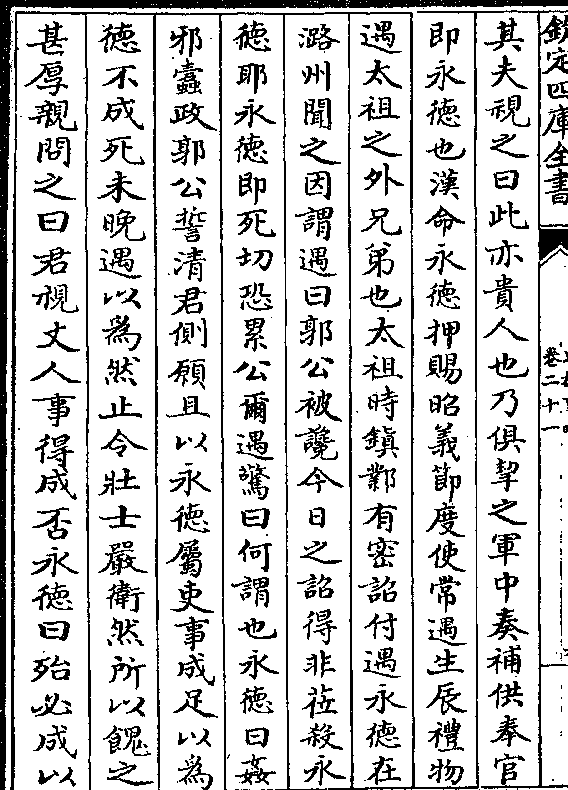 欽定四庫全書
卷二十一
其夫視之曰此亦貴人也乃俱挈之軍中奏補供奉官
即永德也漢命永德押賜昭義節度使常遇生辰禮物
遇太祖之外兄弟也太祖時鎮鄴有密詔付遇永德在
潞州聞之因謂遇曰郭公被讒今日之詔得非莅殺永
德耶永德即死切恐累公爾遇驚曰何謂也永德曰姦
邪蠹政郭公誓清君側願且以永德屬吏事成足以為
德不成死未晚遇以為然止令壯士嚴衛然所以餽之
甚厚親問之曰君視丈人事得成否永德曰殆必成以